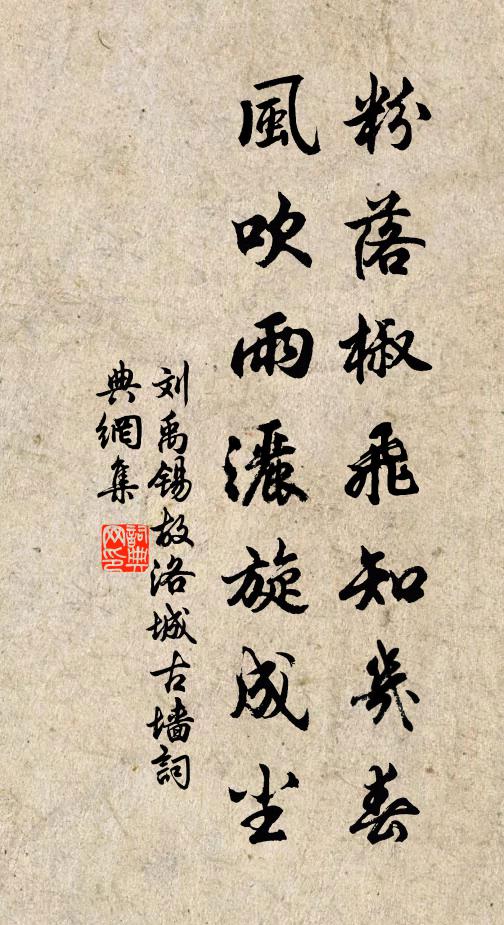 粉落椒飛知幾春
風吹雨灑旋成尘
刘禹锡故洛城古墙詞
典網集
詞典网印